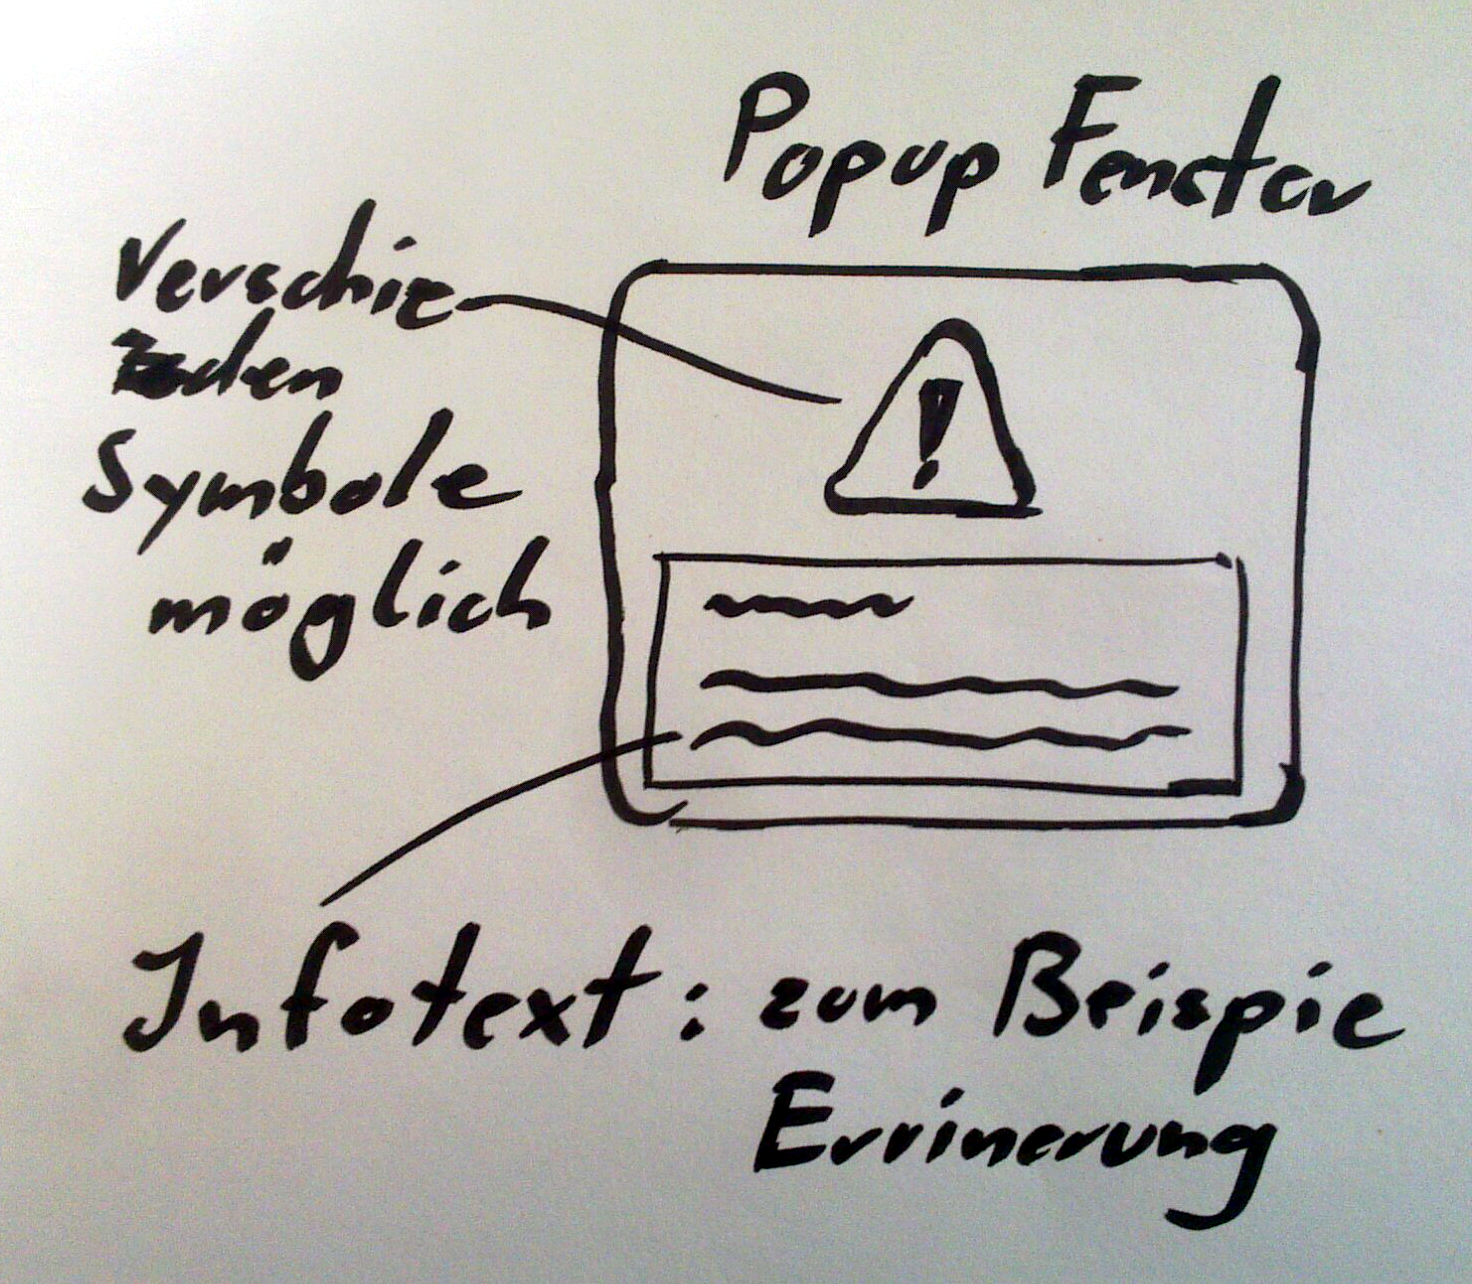 Popup Fenster
Verschie
den
Symbole
möglich
!
Infotext: zum Beispie
Errinerung